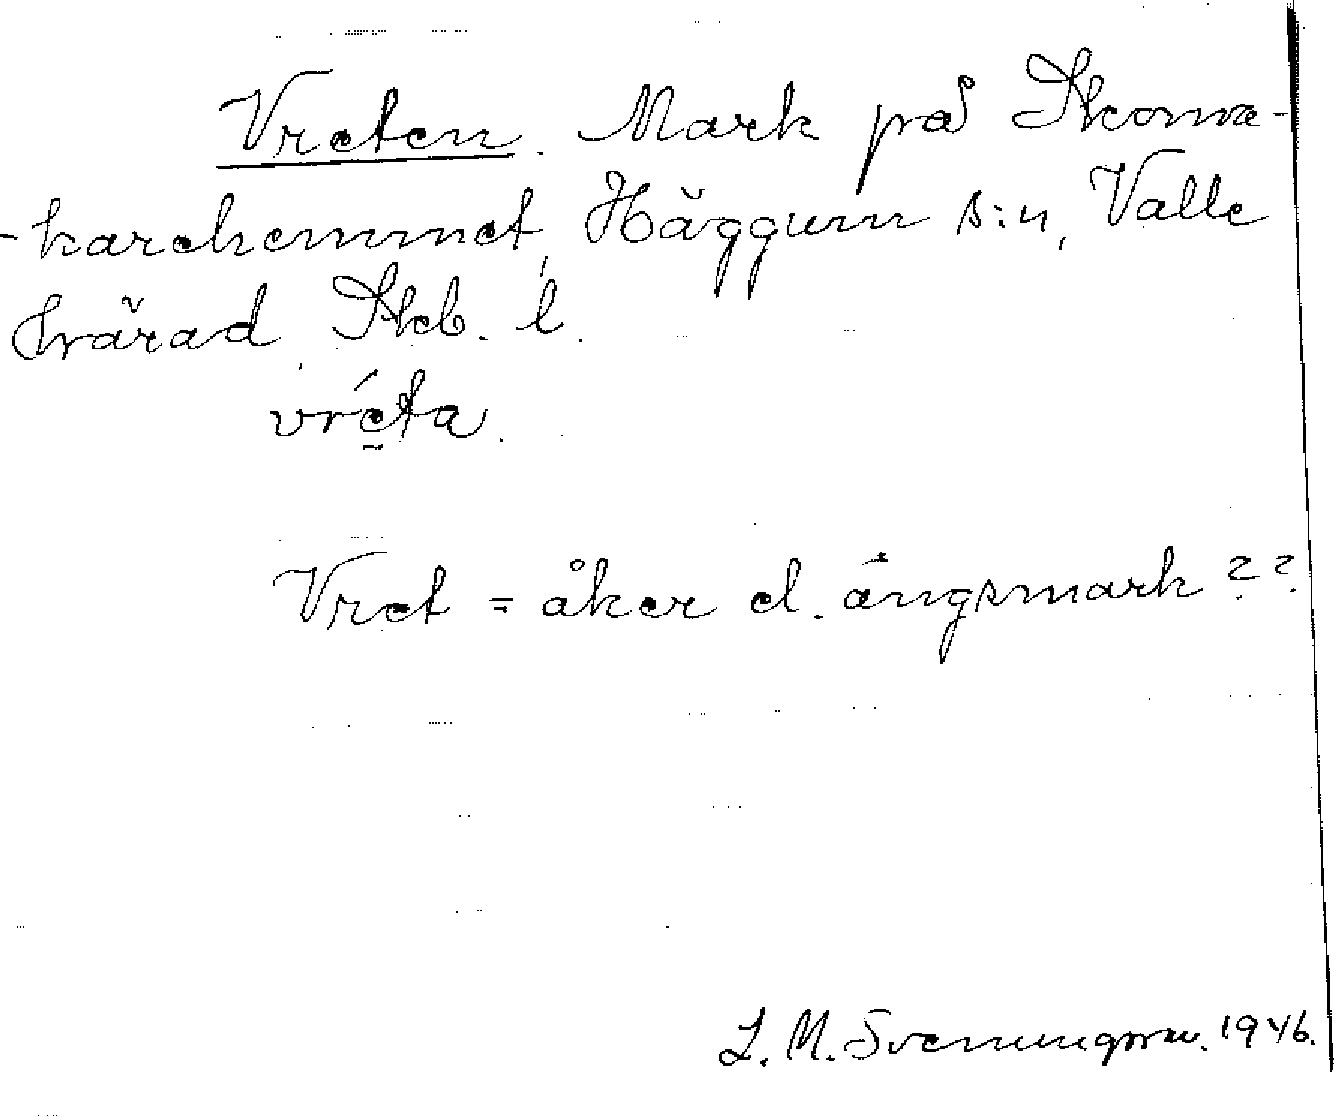 Vreten. Mark på Skoma-
-karehemmet, Häggum s:n, Valle
härad, Skb. l.
vréta.
Vret = åker el. ängsmark ??.
L. M. Svenungsson. 1946.